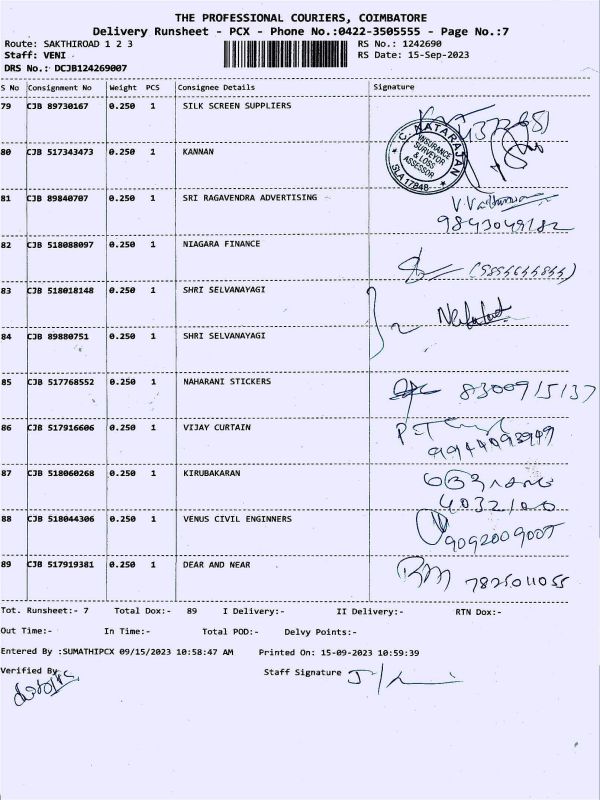 THE PROFESSIONAL COURIERS, COIMBATORE
Delivery Runsheet - PCX - Phone No.:0422-3505555 - Page No.:7
Route: SAKTHIROAD 1 2 3
RS No.: 1242690
Staff: VENI
RS Date: 15-Sep-2023
DRS No.: DCJB124269007
S No Consignment No Weight PCS Consignee Details Signature
79 CJB 89730167 0.250 1 SILK SCREEN SUPPLIERS
C. NATARAJAN
INSURANCE
SURVEYOR
& LOSS
ASSESSOR
SLA 17848
80 CJB 517343473 0.250 1 KANNAN
81 CJB 89840707 0.250 1 SRI RAGAVENDRA ADVERTISING
9843049182
82 CJB 518088097 0.250 1 NIAGARA FINANCE
83 CJB 518018148 0.250 1 SHRI SELVANAYAGI
84 CJB 89880751 0.250 1 SHRI SELVANAYAGI
85 CJB 517768552 0.250 1 NAHARANI STICKERS
8300915137
86 CJB 517916606 0.250 1 VIJAY CURTAIN
87 CJB 518060268 0.250 1 KIRUBAKARAN
88 CJB 518044306 0.250 1 VENUS CIVIL ENGINNERS
9092009005
89 CJB 517919381 0.250 1 DEAR AND NEAR
7825011055
Tot. Runsheet:- 7 Total Dox:- 89 I Delivery:- II Delivery:- RTN Dox:-
Out Time:- In Time:- Total POD:- Delvy Points:-
Entered By :SUMATHIPCX 09/15/2023 10:58:47 AM Printed On: 15-09-2023 10:59:39
Verified By
Staff Signature